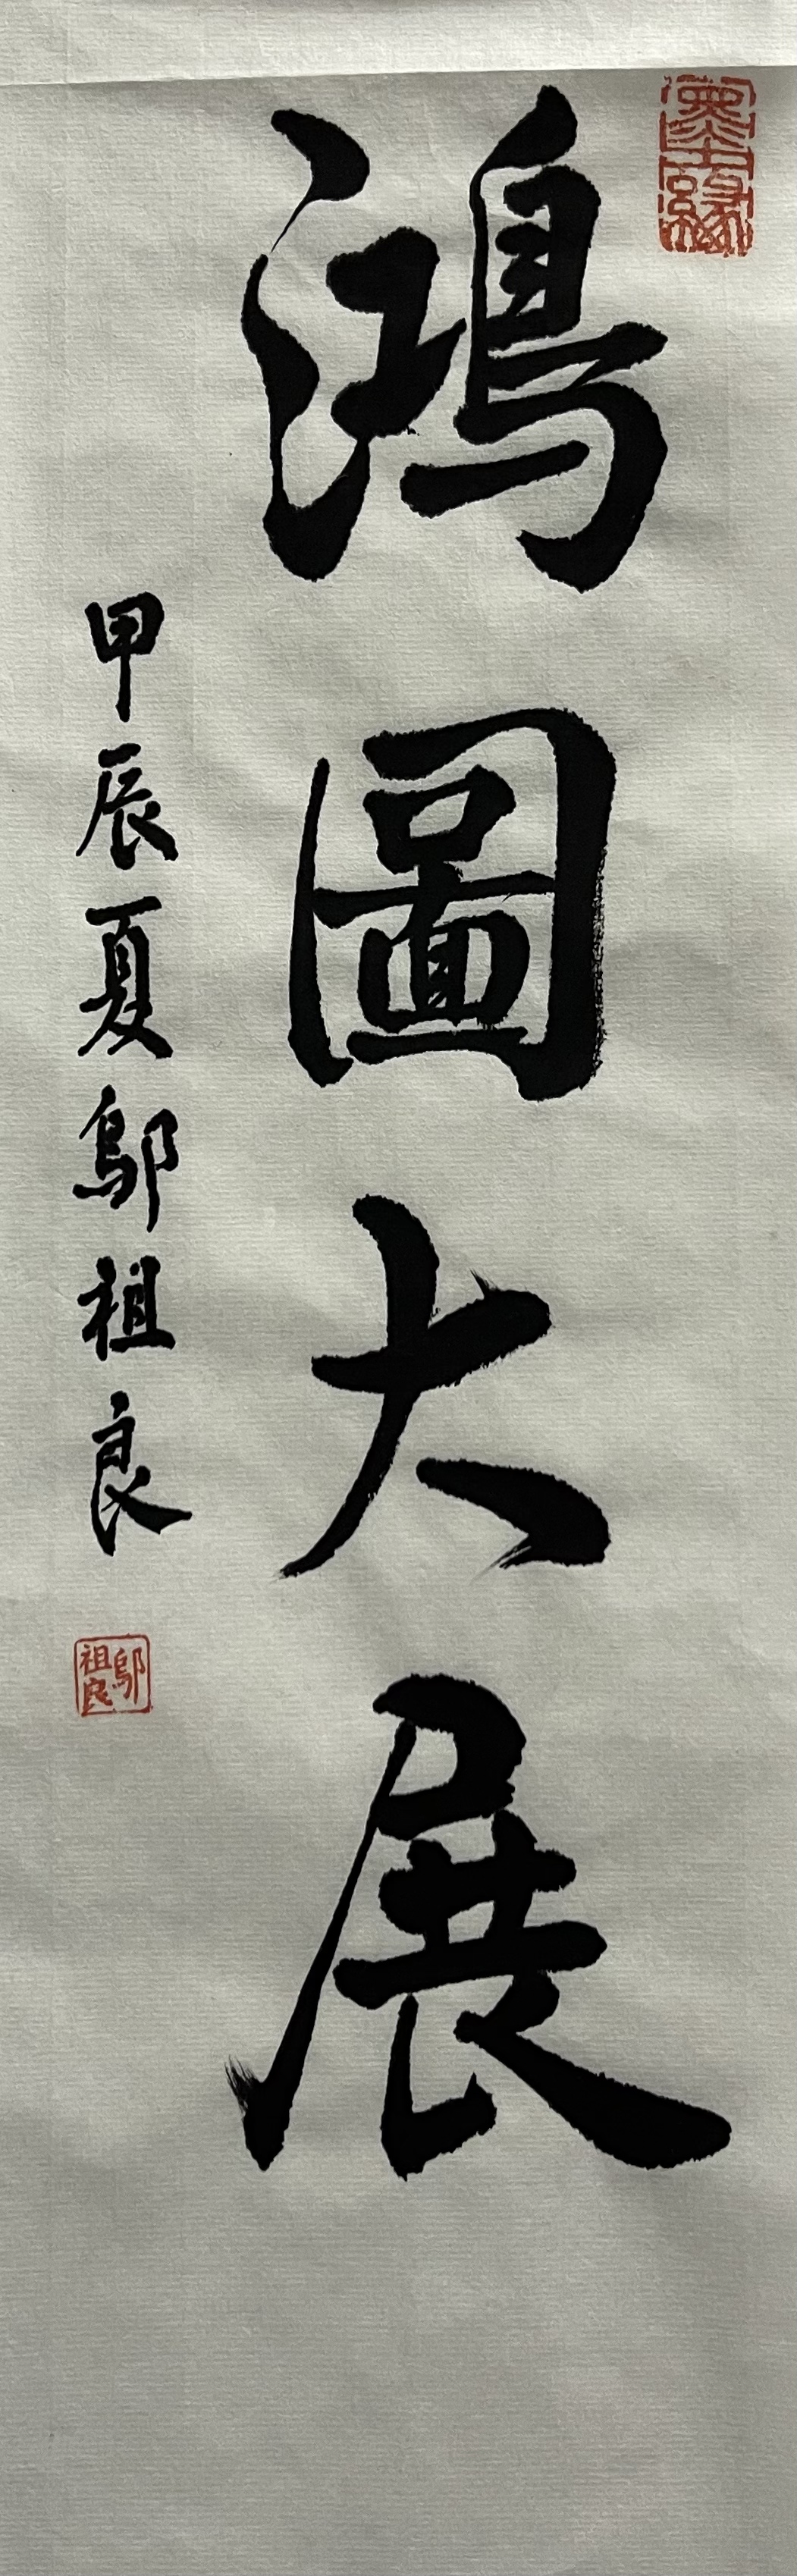 墨緣
鴻圖大展
甲辰夏鄔祖良
鄔祖良